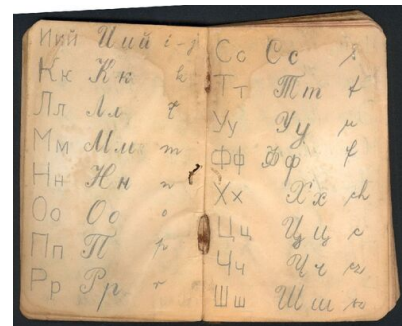 Иий Иий i-j
Кк Кк k
Лл Лл ł
Мм Мм m
Нн Нн n
Оо Оо o
Пп П p
Рр Рр r
Сс Сс s
Тт Тт t
Уу Уу u
Фф Фф f
Хх Хх ch
Цц Цц c
Чч Чч cz
Шш Шш sz